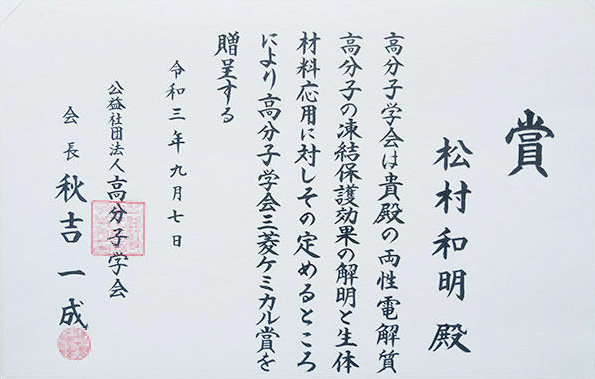 賞
松村和明殿
高分子学会は貴殿の両性電解質
高分子の凍結保護効果の解明と生体
材料応用に対しその定めるところ
により高分子学会三菱ケミカル賞を
贈呈する
令和三年九月七日
公益社団法人高分子学会
会長秋吉一成